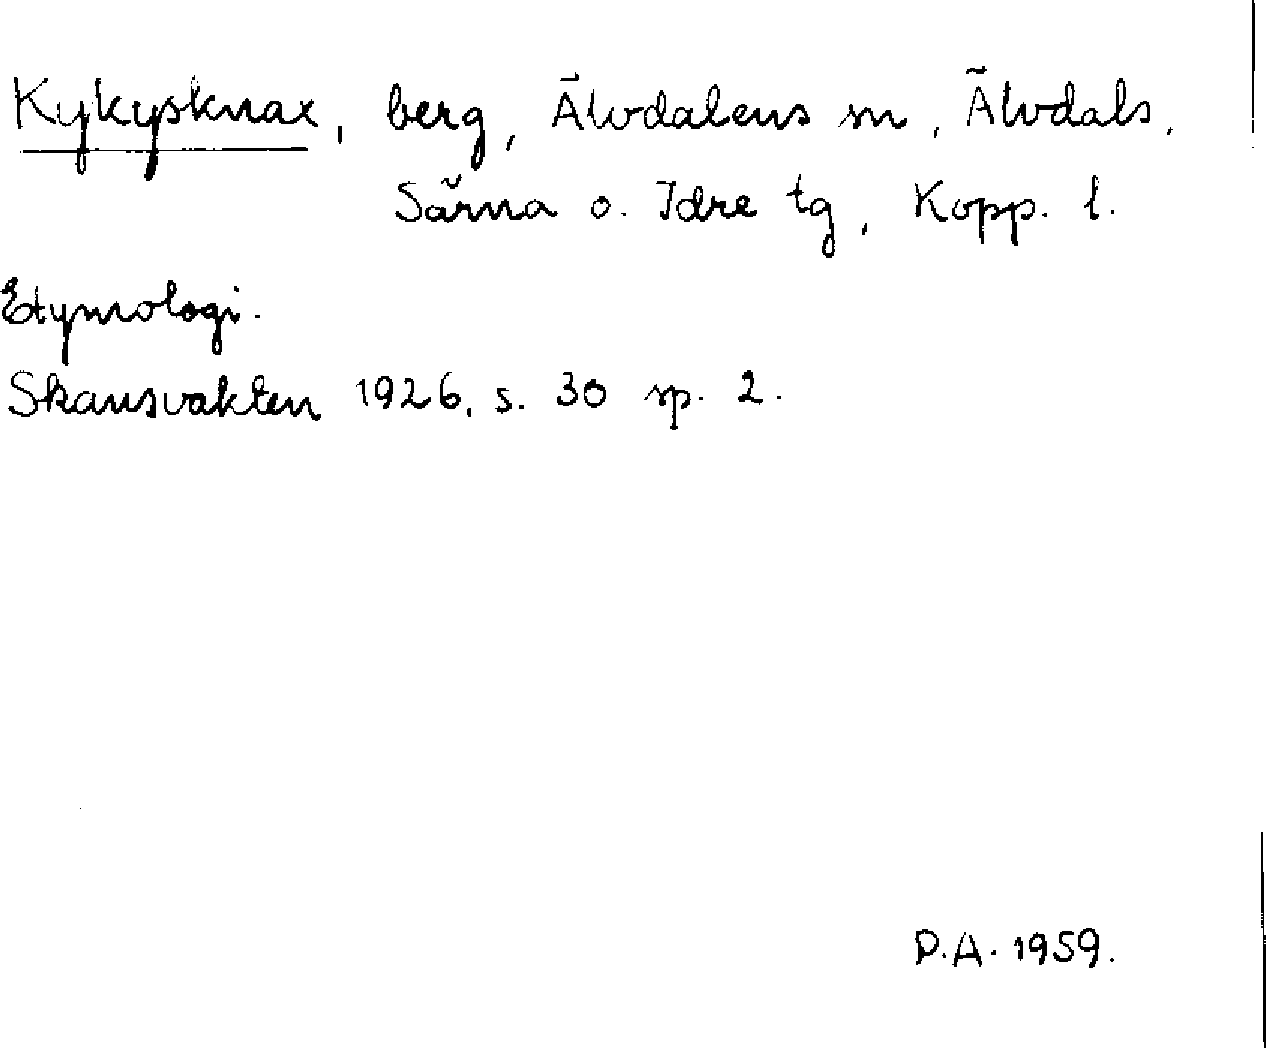 Kykysknax, berg, Älvdalens sn, Älvdals,
Särna o. Idre tg, Kopp. l.
Etymologi.
Skansvakten 1926, s. 30 sp. 2.
D.A. 1959.